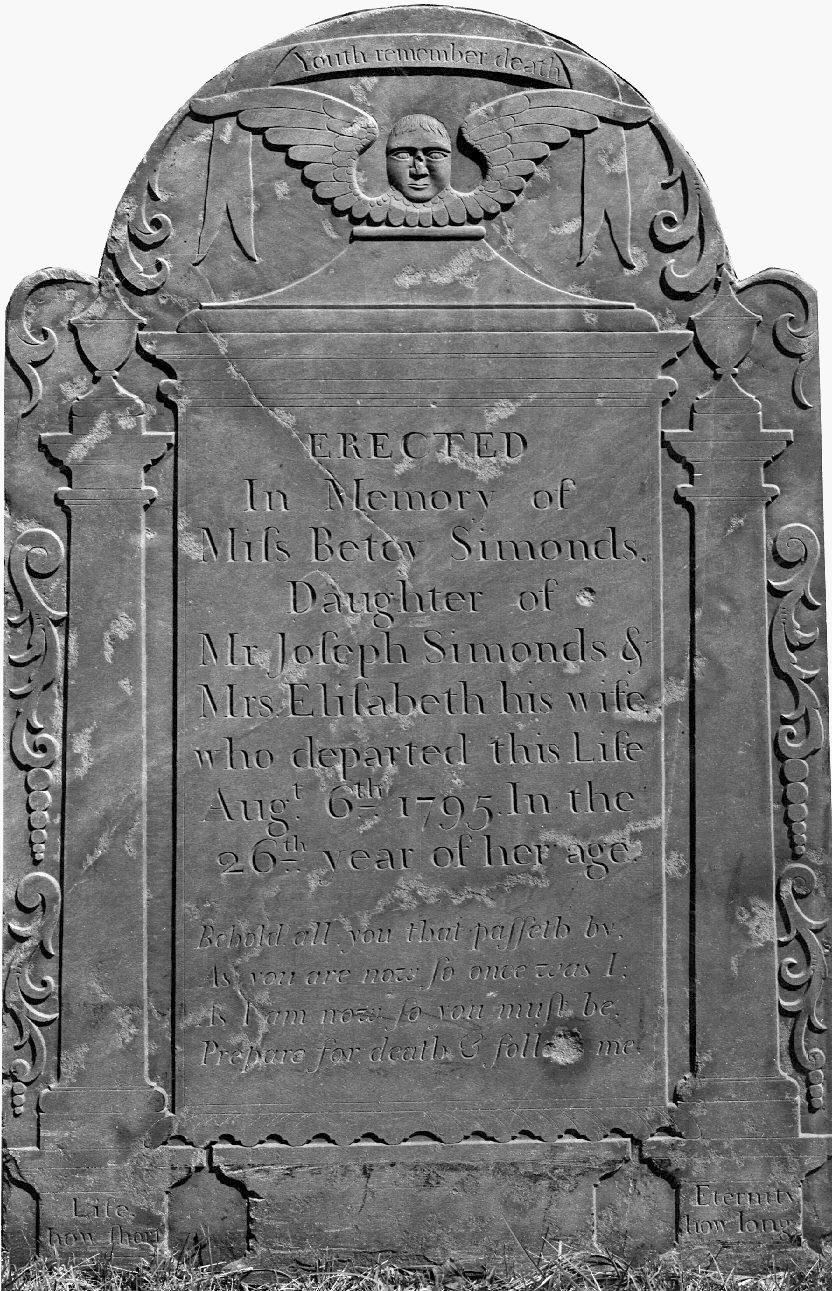 Youth remember death
ERECTED
In Memory of
Miſs Betcy Simonds.
Daughter of
Mr Joſeph Simonds &
Mrs. Eliſabeth his wife.
who departed this Life
Augt. 6th 1795. In the
26th year of her age.
Behold all you that paſſeth by,
As you are now ſo once was I;
As I am now ſo you muſt be,
Prepare for death & follow me.
Life
how ſhort
Eternity
how long